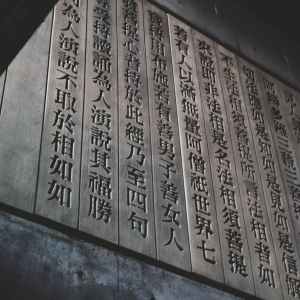 多羅三藐三菩
法應如是知如是見如是信解
不生法相須菩提所言法相者如
說即非法相是名法相須菩提
若有人以滿無量阿僧祇世界七
持用布施若有善男子善女人
菩提心者持於此經乃至四句
持讀誦為人演說其福勝
何為人演說不取於相如如